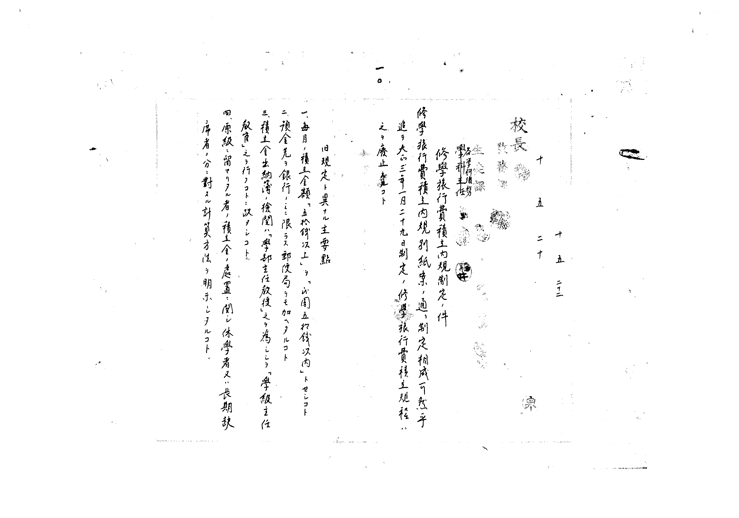 一〇
十 五 二十二
十 五 二十
校長
生徒課
學科主任
修學旅行費積立内規制定ノ件
修學旅行費積立内規別紙案ノ通リ制定相成可然乎
追テ大正三年一月二十九日制定ノ修學旅行費積立規程ハ
之ヲ廢止スルコト
旧規定ト異ナル主要點
一、毎月ノ積立金額「五拾錢以上」ヲ「式圓五拾錢以内」トセシコト
二、預金先ヲ銀行ノミニ限ラズ郵便局ヲモ加ヘタルコト
三、積立金出納簿ノ檢閲ハ「學部主任教授」之ヲ爲シシヲ「學級主任
教官」之ヲ行フコトニ改メシコト
四、原級ニ留マリタル者ノ積立金ノ處置ニ關シ休學者又ハ長期缺
席者ノ分ニ對スル計算方法ヲ明示シタルコト、